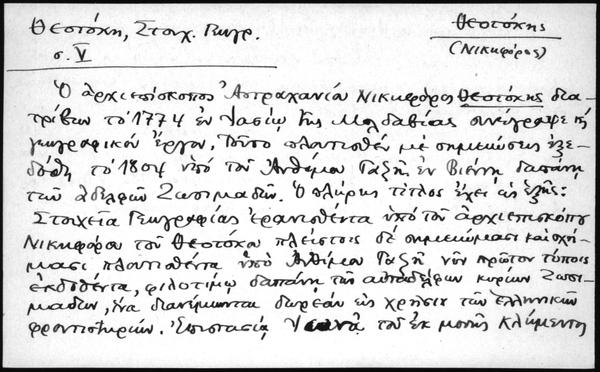 Θεοτόκη, Στοιχ. Γεωγρ.
σ. V
Θεοτόκης
(Νικηφόρος)
Ὁ ἀρχιεπίσκοπος Ἀστραχανίου Νικηφόρος Θεοτόκης δια-
τρίβων τὸ 1774 ἐν Ἰασίῳ τῆς Μολδαβίας συνέγραψε τὸ
γεωγραφικὸν ἔργον. Τοῦτο πλουτισθὲν μὲ σημειώσεις ἐξε-
δόθη τὸ 1804 ὑπὸ τοῦ Ἀνθίμου Γαζῆ ἐν Βιέννῃ δαπάνῃ
τῶν ἀδελφῶν Ζωσιμαδῶν. Ὁ πλήρης τίτλος ἔχει ὡς ἑξῆς:
Στοιχεῖα Γεωγραφίας ἐρανισθέντα ὑπὸ τοῦ ἀρχιεπισκόπου
Νικηφόρου τοῦ Θεοτόκου πλείστοις δὲ σημειώμασι καὶ σχή-
μασι πλουτισθέντα ὑπὸ Ἀνθίμου Γαζῆ νῦν πρῶτον τύποις
ἐκδοθέντα, φιλοτίμῳ δαπάνῃ τῶν αὐταδέλφων κυρίων Ζωσι-
μαδῶν, ἵνα διανέμωνται δωρεὰν εἰς χρῆσιν τῶν ἑλληνικῶν
φροντιστηρίων. Ἐπιστασίᾳ τοῦ ἐκ μονῆς Κλήμεντος